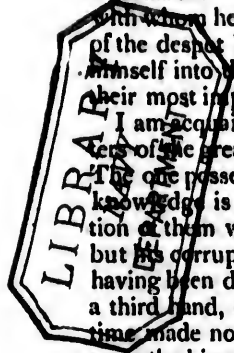 with whom he
of the despot
himself into
their most im
I am acquai
ters of the grea
The one posse
knowledge is
tion of them w
but its corrup
having been d
a third hand,
time made no
LIBRARY
LAW
DEPARTMENT